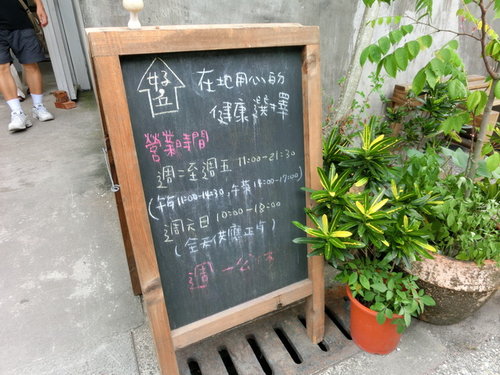 好丘
在地用心的
健康選擇
營業時間
週二至週五 11:00-21:30
(午餐11:00-14:30,午茶14:00-17:00)
週六日 10:00-18:00
(全天供應正餐)
週一公休